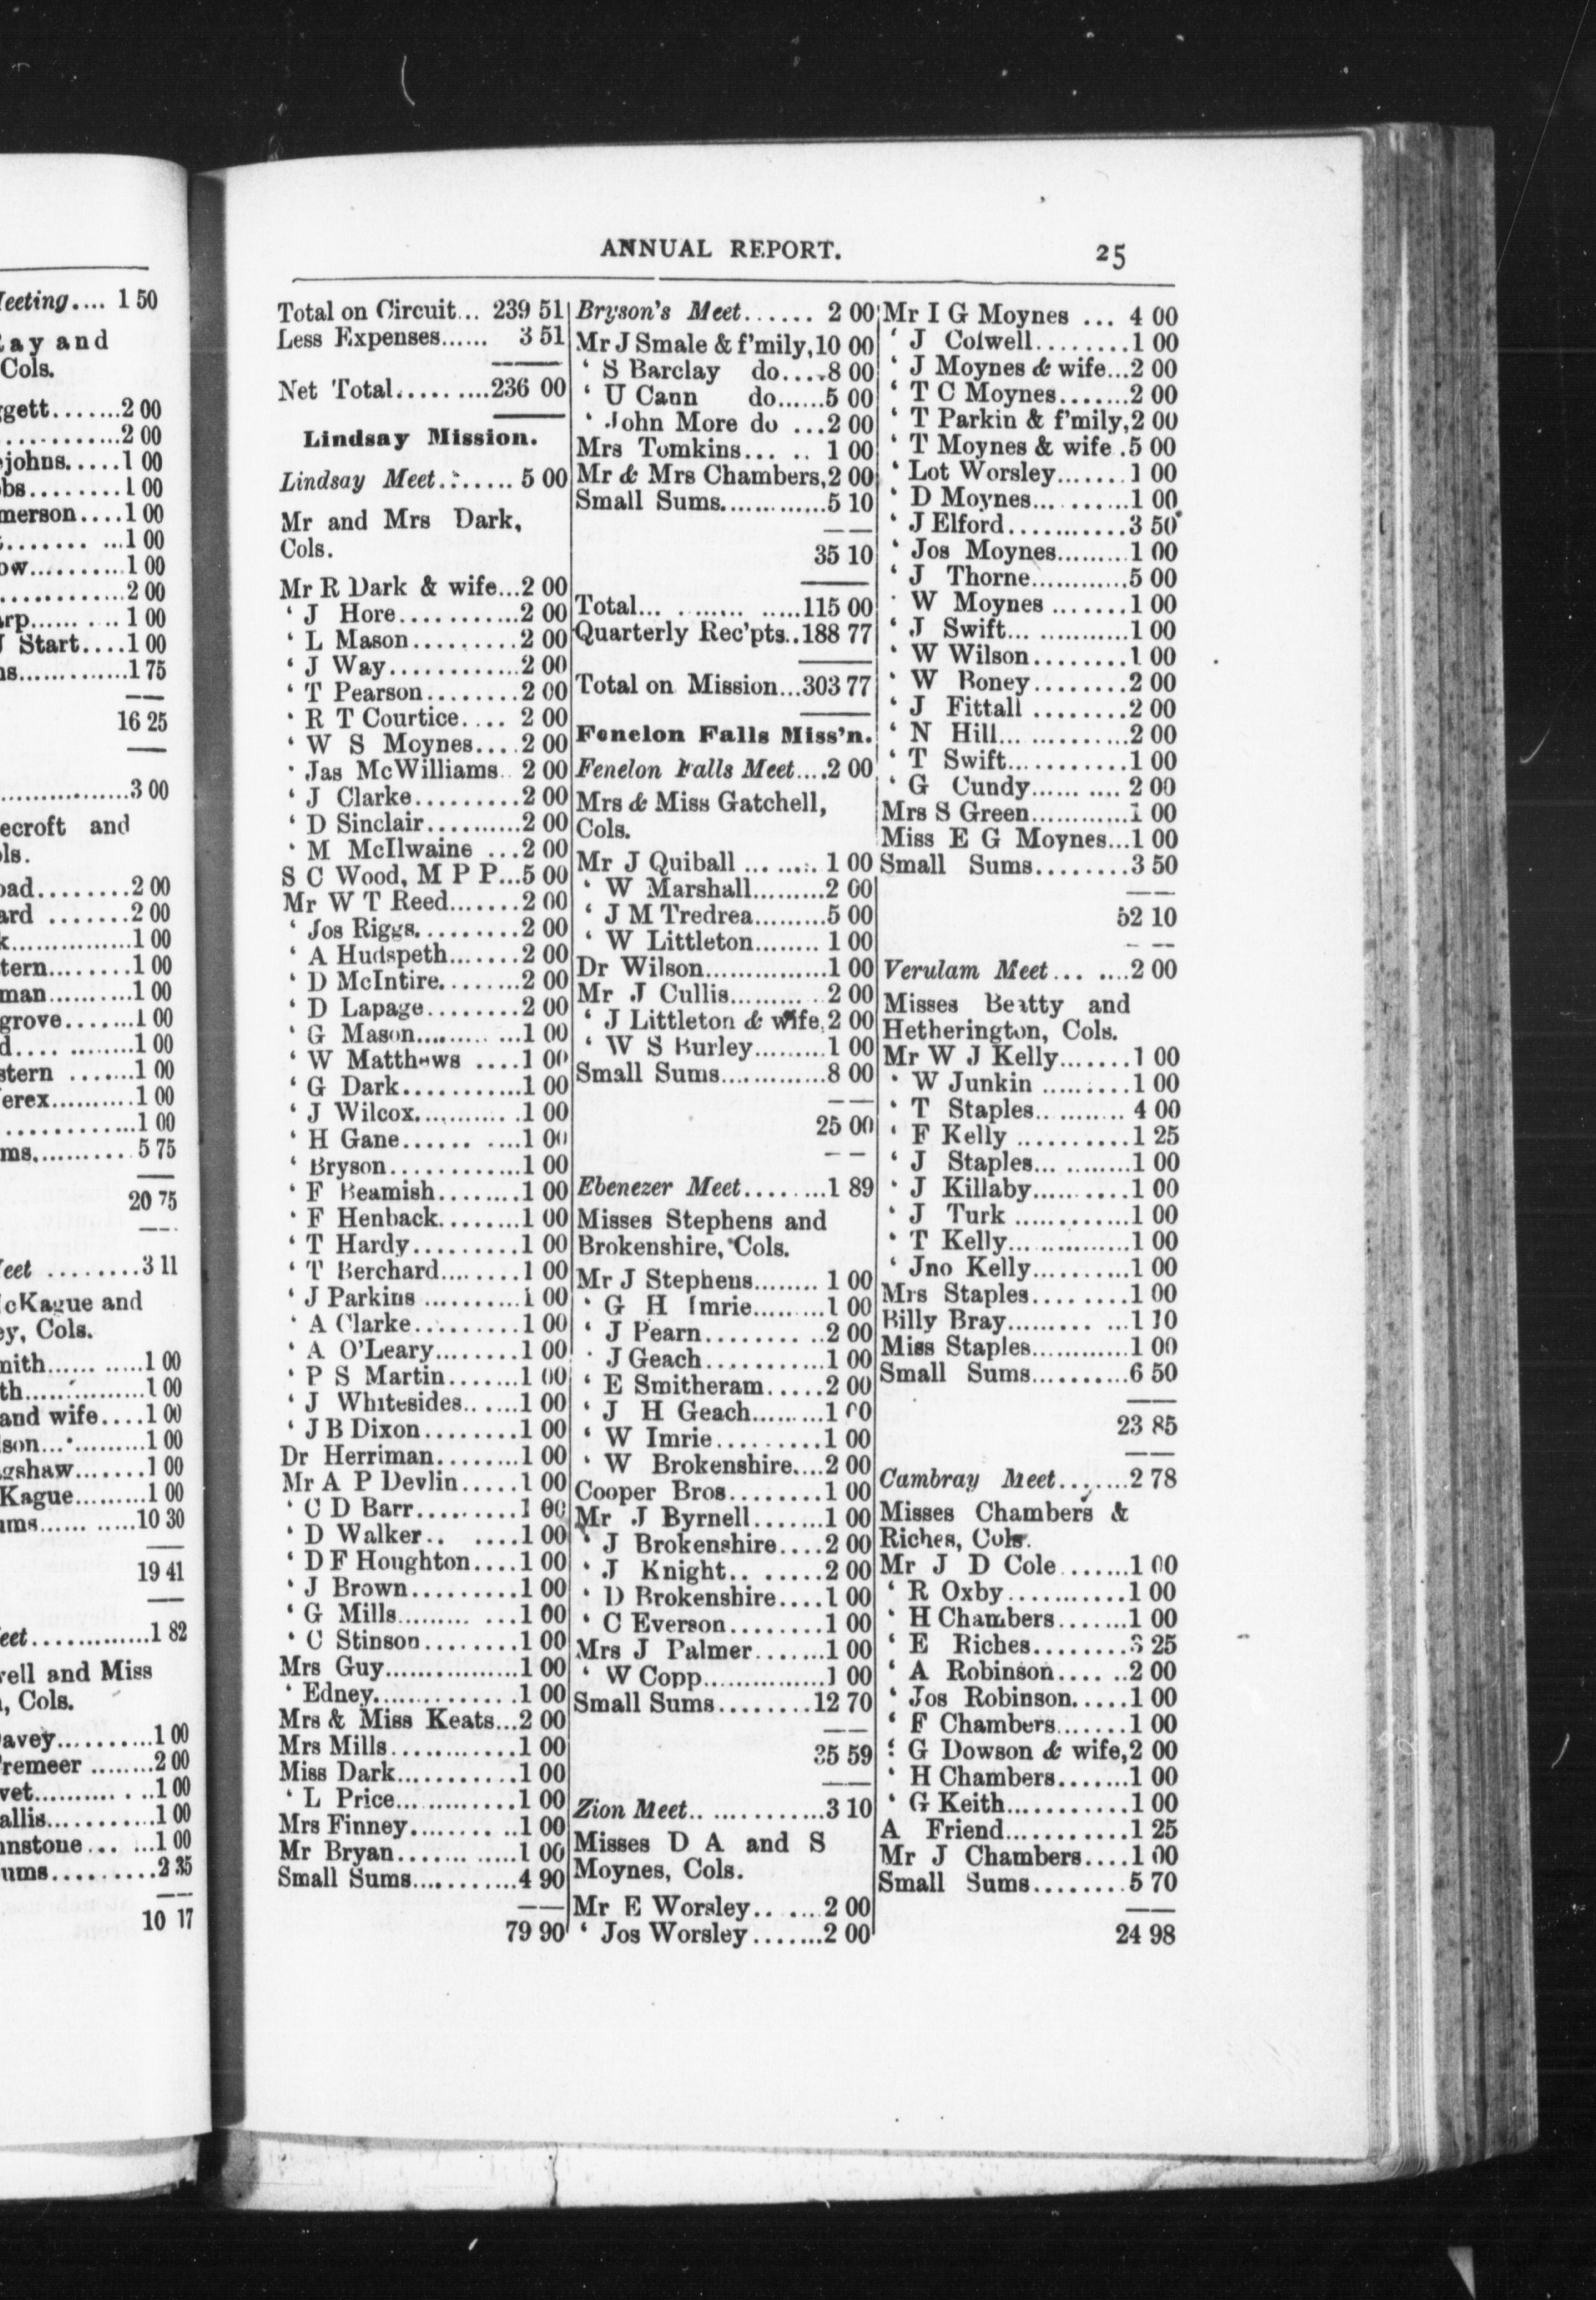 eeting.... 1 50
ay and
Cols.
ggett.......2 00
............2 00
johns.....1 00
bs.........1 00
merson....1 00
....... ...1 00
ow..........1 00
.............2 00
arp...... ... 1 00
J Start....1 00
.............1 75
16 25
................3 00
ecroft and
ls.
oad........2 00
ard .......2 00
k..............1 00
tern........1 00
man..........1 00
grove.......1 00
d.... ........1 00
stern .......1 00
erex..........1 00
...............1 00
ms........... 5 75
20 75
eet .........3 11
cKague and
ey, Cols.
mith...... .....1 00
th..............1 00
and wife....1 00
son............1 00
gshaw.......1 00
Kague.........1 00
ums...... .....10 30
19 41
eet.............1 82
rell and Miss
, Cols.
avey..........1 00
remeer ........2 00
vet.......... . ..1 00
allis...........1 00
nnstone... ...1 00
ums..........2 35
10 17
ANNUAL REPORT. 25
Total on Circuit... 239 51
Less Expenses...... 3 51
Net Total..........236 00
Lindsay Mission.
Lindsay Meet........ 5 00
Mr and Mrs Dark,
Cols.
Mr R Dark & wife...2 00
' J Hore...........2 00
' L Mason..........2 00
' J Way............2 00
' T Pearson........2 00
' R T Courtice.... 2 00
' W S Moynes....2 00
' Jas McWilliams.. 2 00
' J Clarke.........2 00
' D Sinclair..........2 00
' M McIlwaine ...2 00
S C Wood, M P P...5 00
Mr W T Reed.......2 00
' Jos Riggs..........2 00
' A Hudspeth.......2 00
' D McIntire........2 00
' D Lapage........2 00
' G Mason......... ...1 00
' W Matthews ....1 00
' G Dark...........1 00
' J Wilcox............1 00
' H Gane...... ....1 00
' Bryson............1 00
' F Beamish........1 00
' F Henback........1 00
' T Hardy.........1 00
' T Berchard........1 00
' J Parkins ..........1 00
' A Clarke..........1 00
' A O'Leary........1 00
' P S Martin.......1 00
' J Whitesides......1 00
' J B Dixon.........1 00
Dr Herriman........1 00
Mr A P Devlin.....1 00
' C D Barr..........1 00
' D Walker.. ....1 00
' D F Houghton....1 00
' J Brown.........1 00
' G Mills......... ...1 00
' C Stinson........1 00
Mrs Guy...............1 00
' Edney.............1 00
Mrs & Miss Keats...2 00
Mrs Mills............1 00
Miss Dark...........1 00
' L Price............1 00
Mrs Finney......... ..1 00
Mr Bryan............1 00
Small Sums...........4 90
79 90
Bryson's Meet....... 2 00
Mr J Smale & f'mily,10 00
' S Barclay do....8 00
' U Cann do......5 00
' John More do ...2 00
Mrs Tomkins... .. 1 00
Mr & Mrs Chambers,2 00
Small Sums.............5 10
35 10
Total... ........ .....115 00
Quarterly Rec'pts..188 77
Total on Mission...303 77
Fenelon Falls Miss'n.
Fenelon Falls Meet....2 00
Mrs & Miss Gatchell,
Cols.
Mr J Quiball ... ..... 1 00
' W Marshall.........2 00
' J M Tredrea.........5 00
' W Littleton........ 1 00
Dr Wilson...............1 00
Mr J Cullis......... . 2 00
' J Littleton & wife,2 00
' W S Burley.........1 00
Small Sums.............8 00
25 00
Ebenezer Meet.........1 89
Misses Stephens and
Brokenshire, Cols.
Mr J Stephens........ 1 00
' G H Imrie.........1 00
' J Pearn......... ..2 00
' J Geach............1 00
' E Smitheram.....2 00
' J H Geach.........1 00
' W Imrie..........1 00
' W Brokenshire....2 00
Cooper Bros.........1 00
Mr J Byrnell.......1 00
' J Brokenshire....2 00
' J Knight.. ......2 00
' D Brokenshire....1 00
' C Everson.........1 00
Mrs J Palmer.......1 00
' W Copp...............1 00
Small Sums.........12 70
35 59
Zion Meet.. ............3 10
Misses D A and S
Moynes, Cols.
Mr E Worsley.. ....2 00
' Jos Worsley.......2 00
Mr I G Moynes ... 4 00
' J Colwell.........1 00
' J Moynes & wife...2 00
' T C Moynes.......2 00
' T Parkin & f'mily,2 00
' T Moynes & wife .5 00
' Lot Worsley.......1 00
' D Moynes... .......1 00
' J Elford............3 50
' Jos Moynes.........1 00
' J Thorne............5 00
' W Moynes .......1 00
' J Swift... ............1 00
' W Wilson.........1 00
' W Boney.........2 00
' J Fittall .........2 00
' N Hill... ...........2 00
' T Swift............1 00
' G Cundy...... .... 2 00
Mrs S Green............1 00
Miss E G Moynes...1 00
Small Sums.........3 50
52 10
Verulam Meet... ....2 00
Misses Beatty and
Hetherington, Cols.
Mr W J Kelly.......1 00
' W Junkin ..........1 00
' T Staples.......... 4 00
' F Kelly ...........1 25
' J Staples... .........1 00
' J Killaby..........1 00
' J Turk ............1 00
' T Kelly...............1 00
' Jno Kelly..........1 00
Mrs Staples.........1 00
Billy Bray......... ...1 10
Miss Staples............1 00
Small Sums..........6 50
23 85
Cambray Meet.......2 78
Misses Chambers &
Riches, Cols.
Mr J D Cole.......1 00
' R Oxby............1 00
' H Chambers.......1 00
' E Riches.........3 25
' A Robinson.... ..2 00
' Jos Robinson.....1 00
' F Chambers.......1 00
' G Dowson & wife,2 00
' H Chambers.......1 00
' G Keith...........1 00
A Friend............1 25
Mr J Chambers....1 00
Small Sums.........5 70
24 98